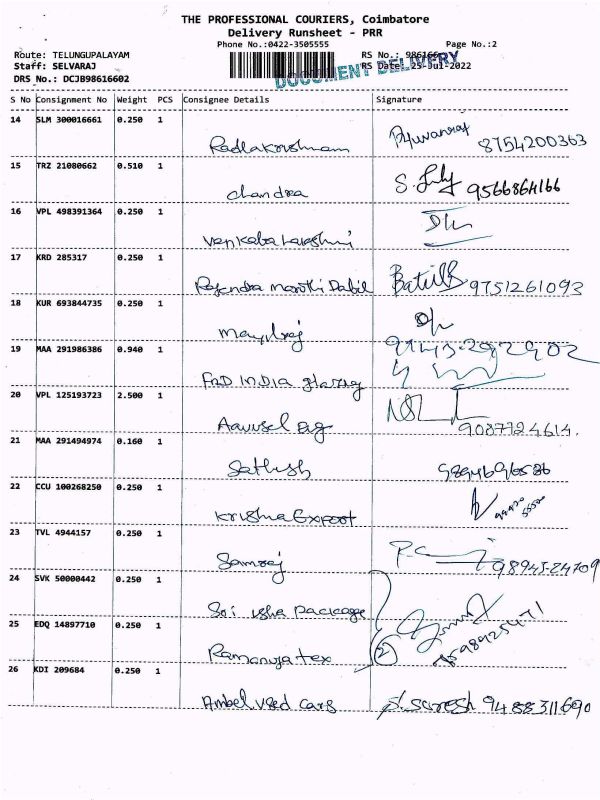 THE PROFESSIONAL COURIERS, Coimbatore
Delivery Runsheet - PRR
Phone No.:0422-3505555 Page No.:2
Route: TELUNGUPALAYAM RS No.: 986166
Staff: SELVARAJ RS Date: 25-Jul-2022
DOCUMENT DELIVERY
DRS No.: DCJB98616602
S No Consignment No Weight PCS Consignee Details Signature
14 SLM 300016661 0.250 1
Radhakrishnam 8754200363
15 TRZ 21080662 0.510 1
chandra 9566864166
16 VPL 498391364 0.250 1
Venkatalakshmi
17 KRD 285317 0.250 1
Rajendra maruthi Patil 9751261093
18 KUR 693844735 0.250 1
Mayilraj
19 MAA 291986386 0.940 1
FRD INDIA
20 VPL 125193723 2.500 1
9087724614.
21 MAA 291494974 0.160 1
Sathish 9894696586
22 CCU 100268250 0.250 1
Krishna Export
23 TVL 4944157 0.250 1
Samraj 98945-24709
24 SVK 50000442 0.250 1
Sri usha package
25 EDQ 14897710 0.250 1
Ramanuja tex 2
26 KDI 209684 0.250 1
Ambel used cars S. Suresh 9488311690